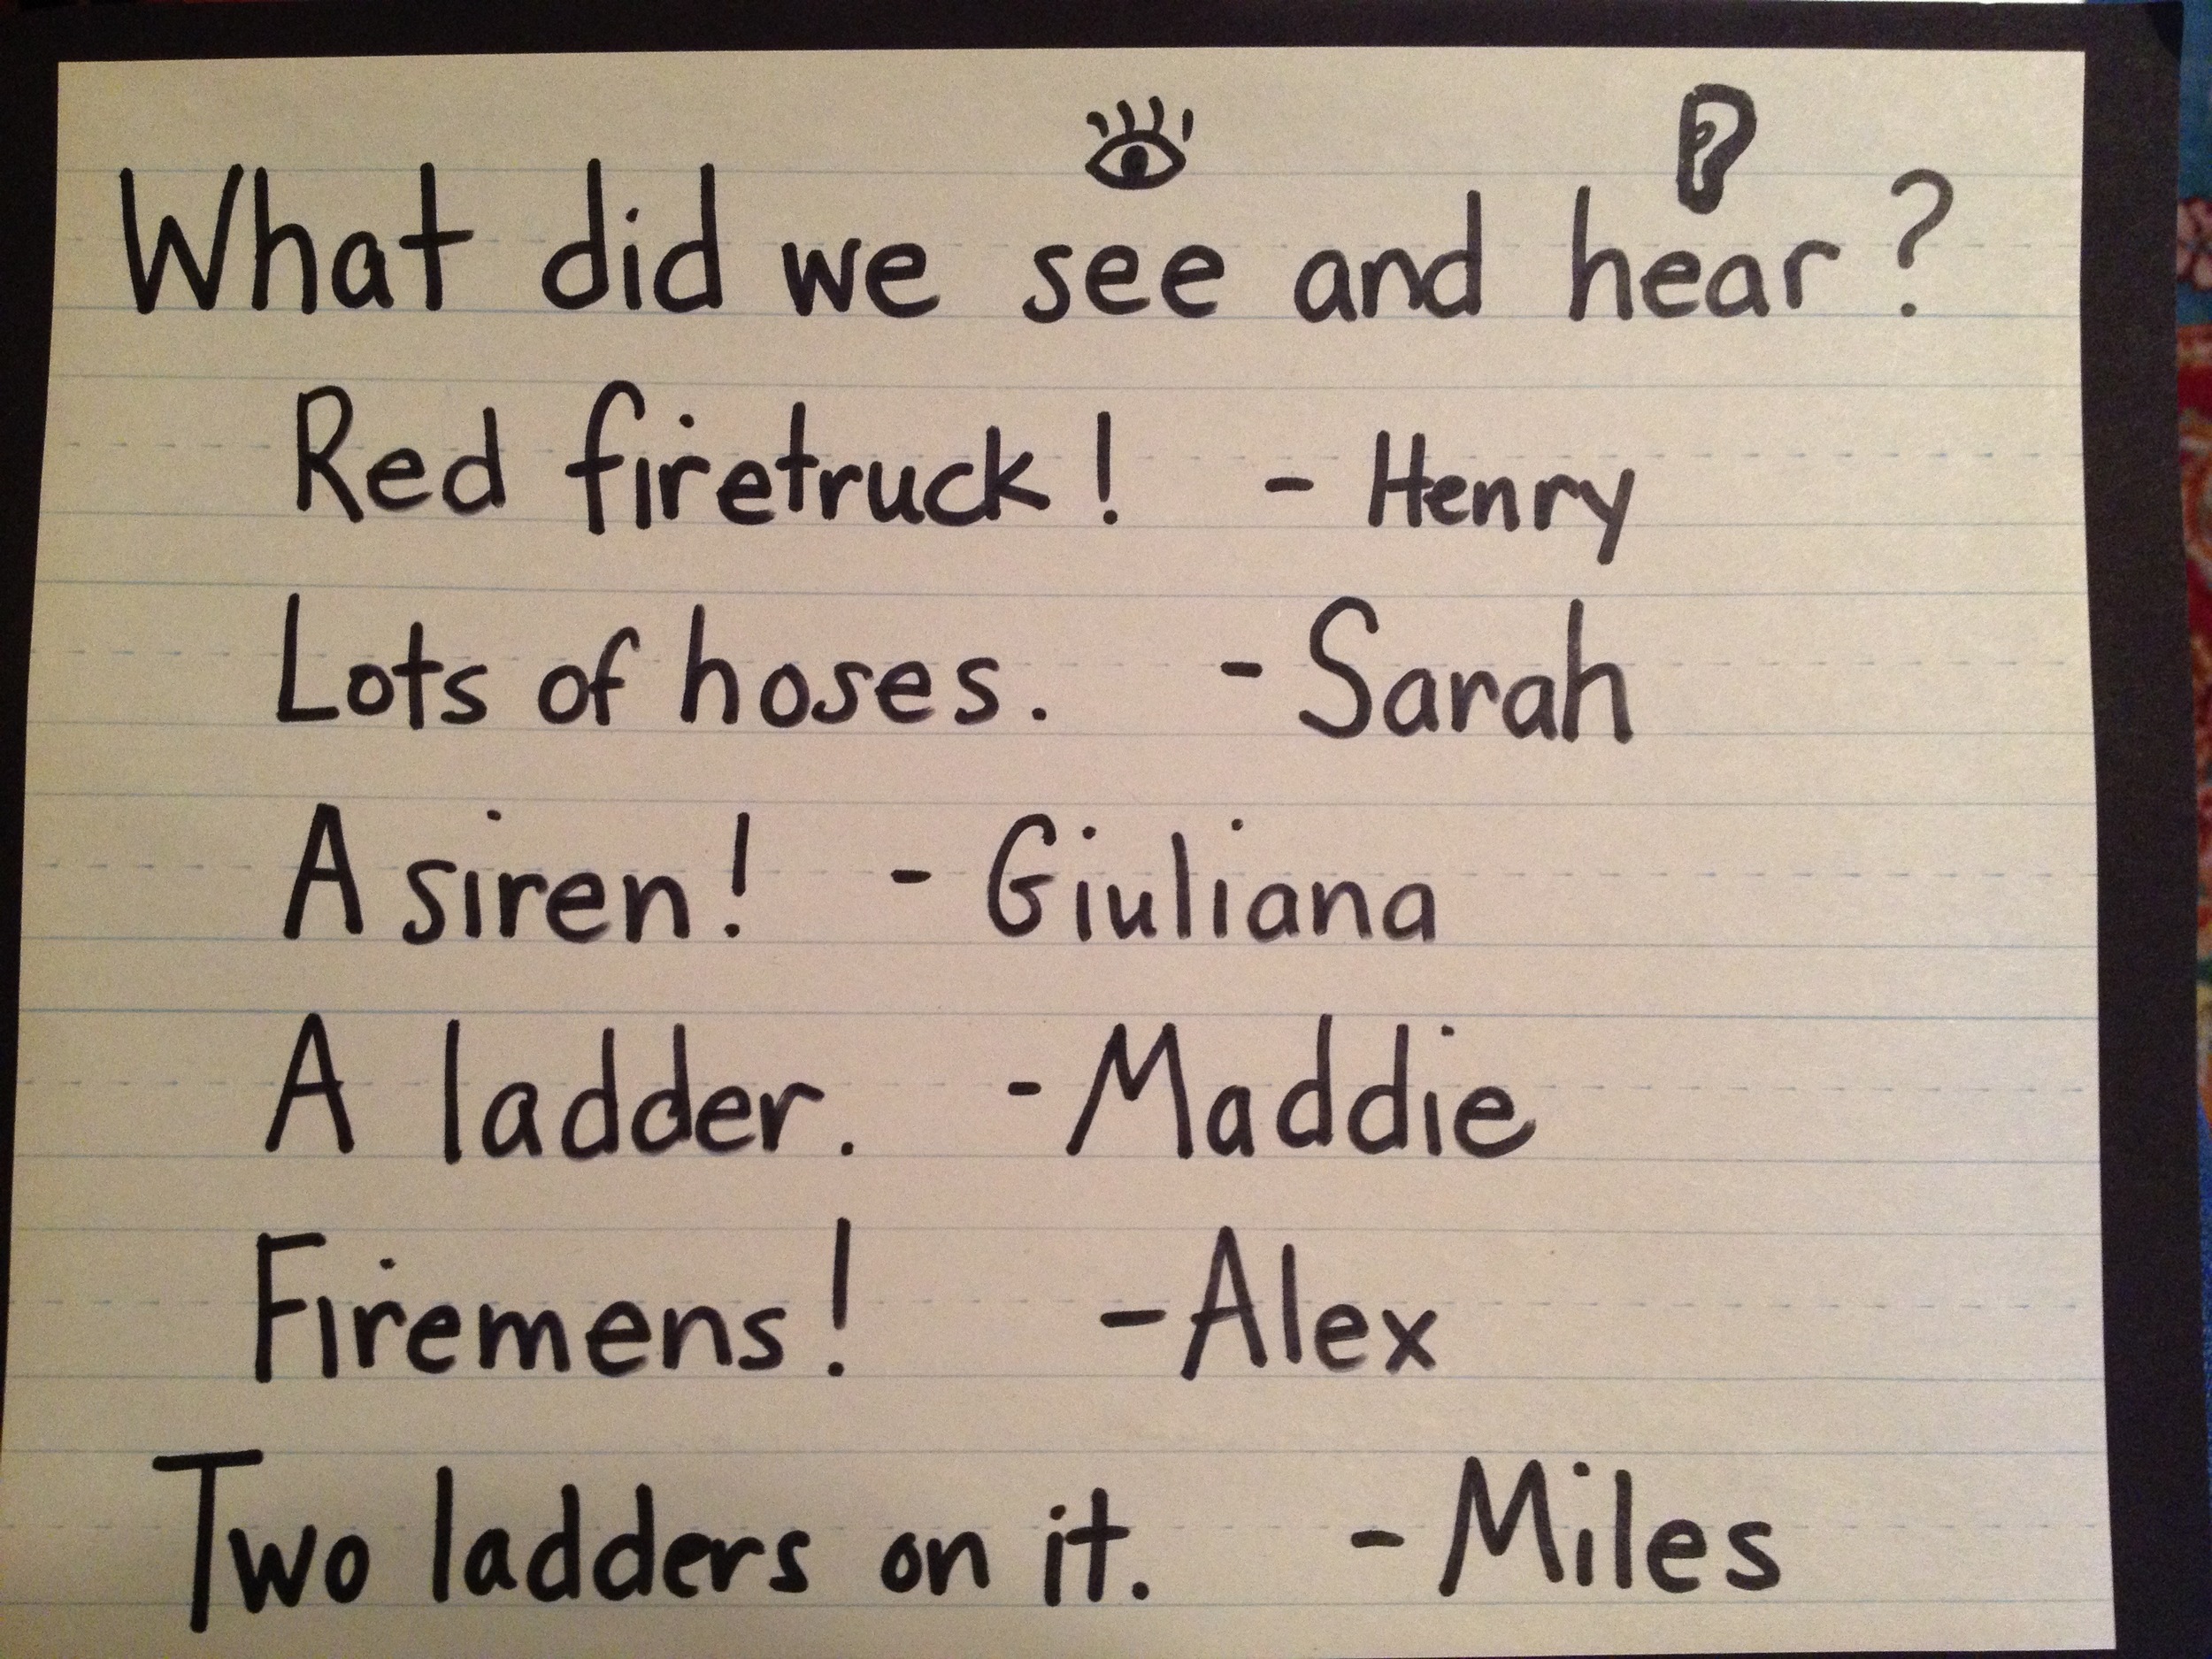 What did we see and hear?
Red firetruck! - Henry
Lots of hoses. - Sarah
A siren! - Giuliana
A ladder. - Maddie
Firemens! - Alex
Two ladders on it. - Miles